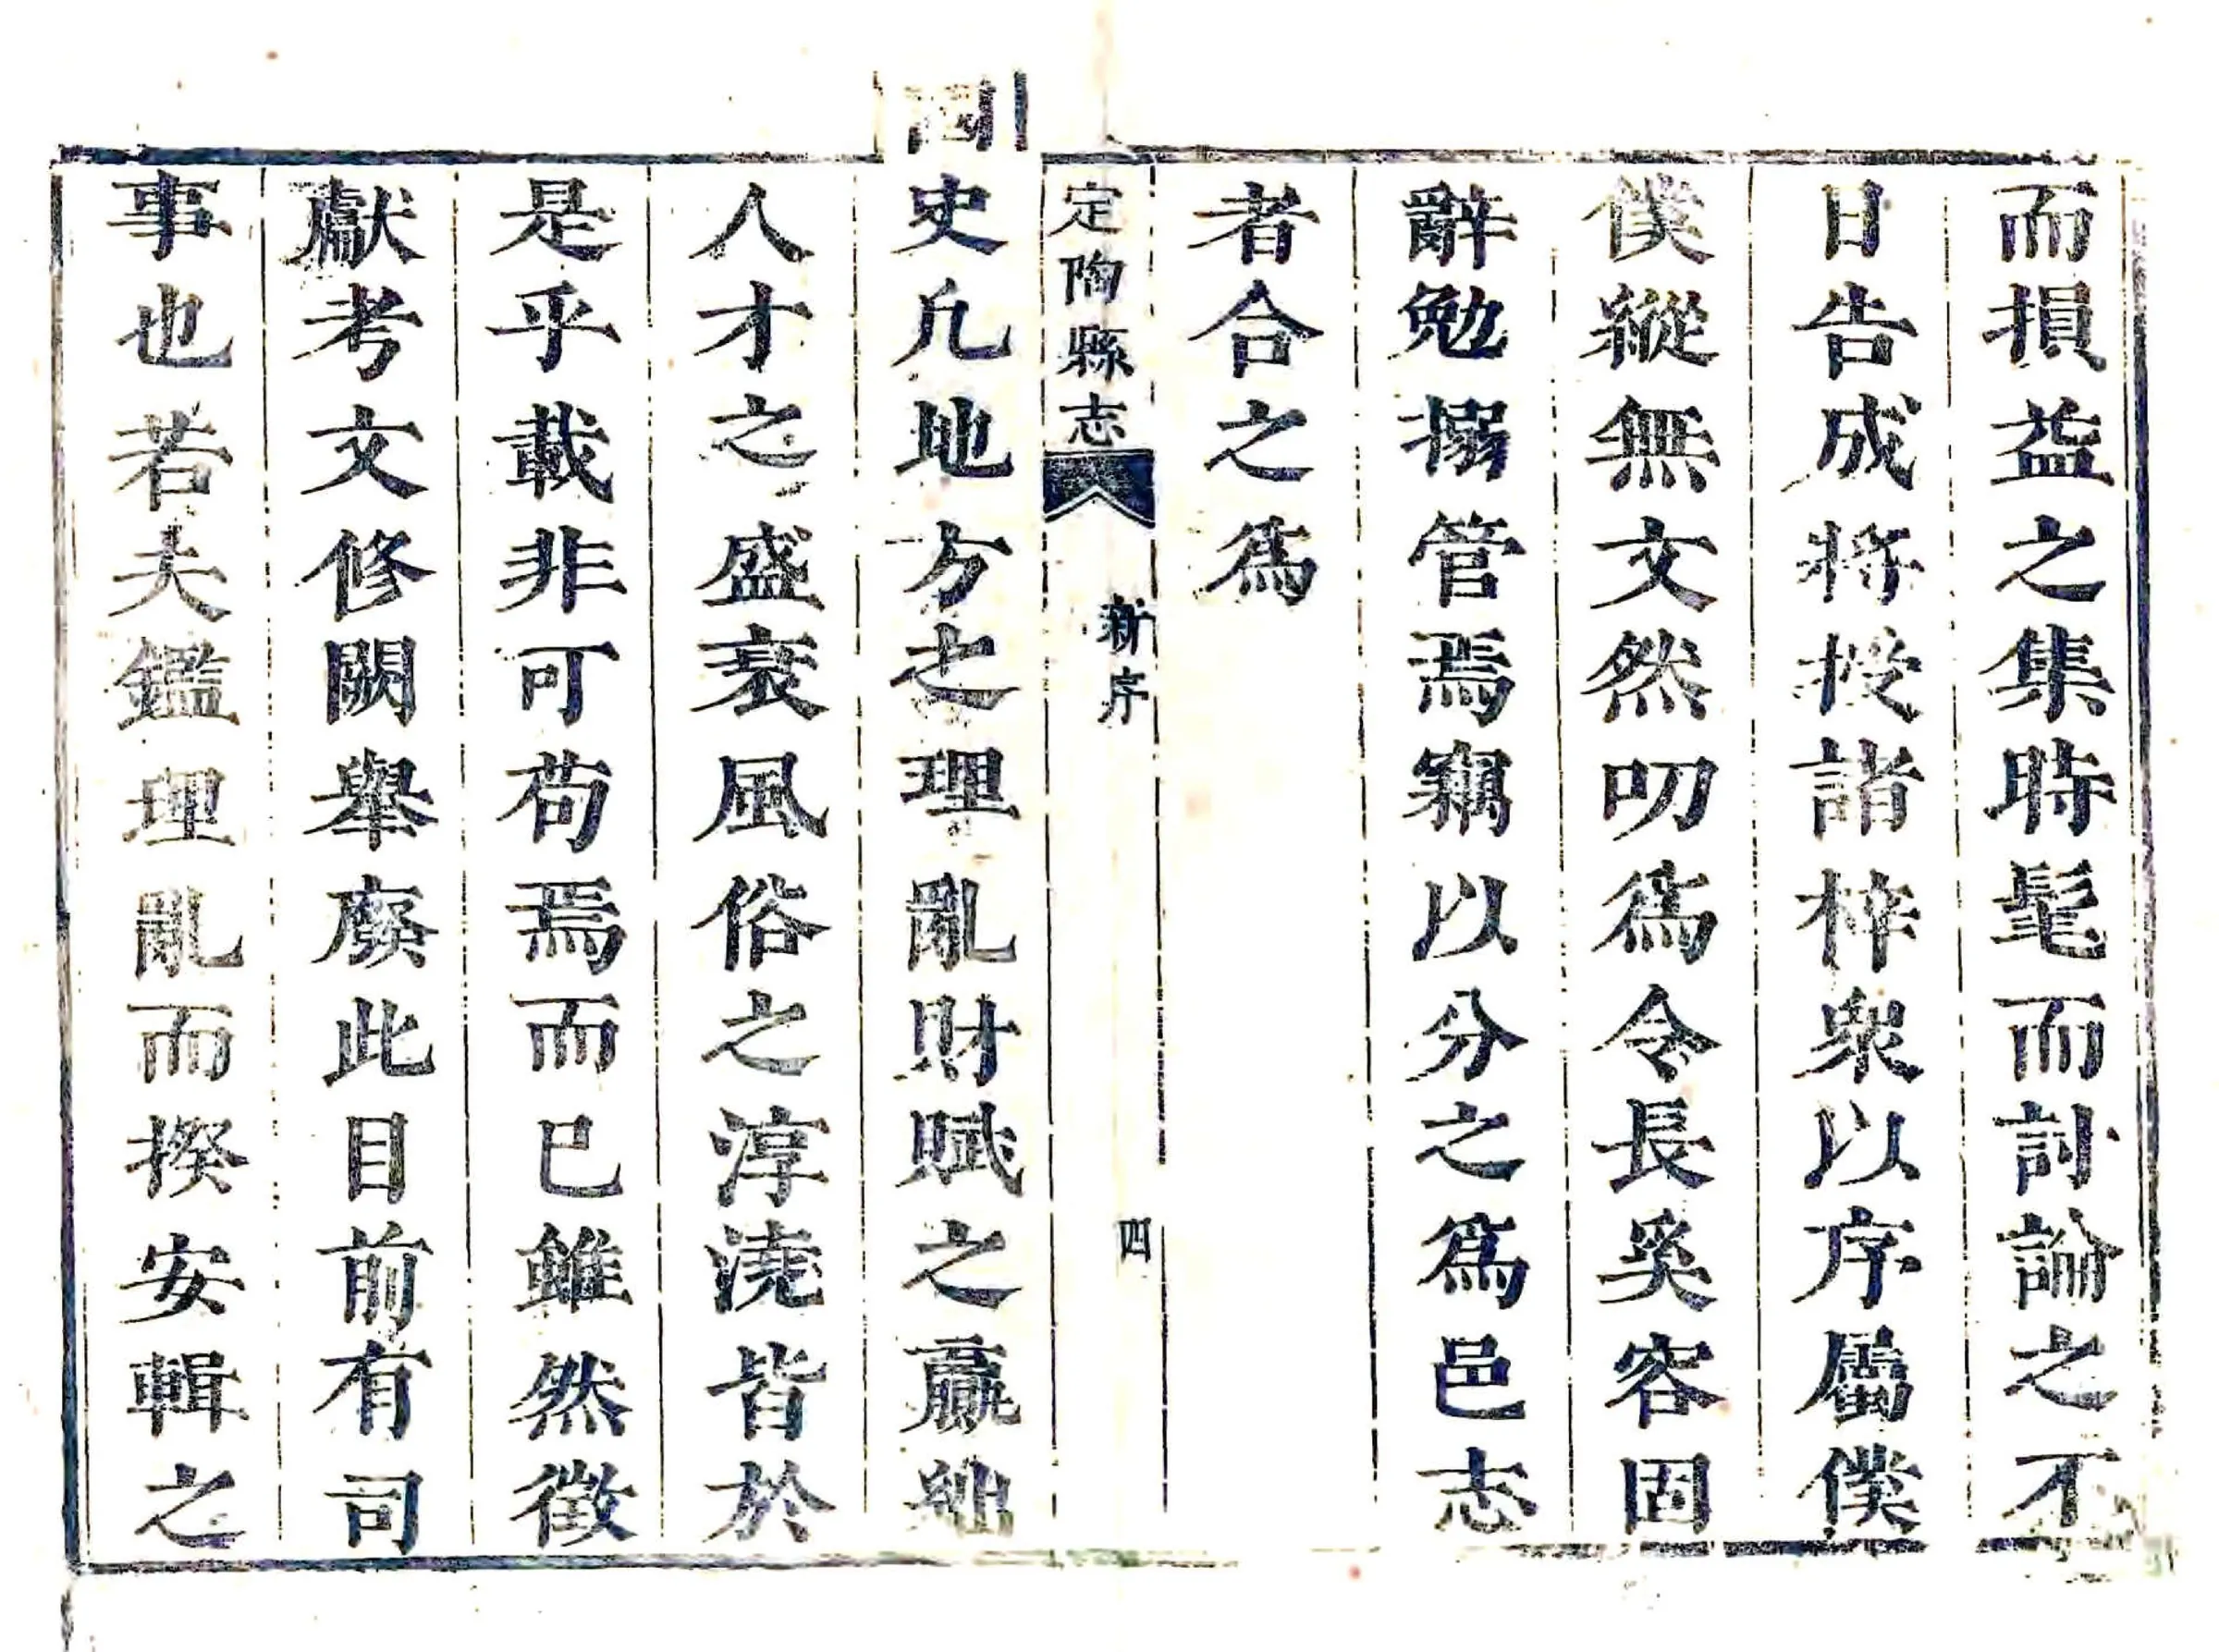 而損益之集時髦而討論之不
日告成將授諸梓衆以序屬僕
僕縱無文然叨爲令長奚容固
辭勉搦管焉竊以分之爲邑志
者合之爲
定陶縣志 新序 四
國史凡地方之理亂財賦之贏絀
人才之盛衰風俗之淳澆皆於
是乎載非可苟焉而已雖然徵
獻考文修闕舉廢此目前有司
事也若夫鑑理亂而揆安輯之